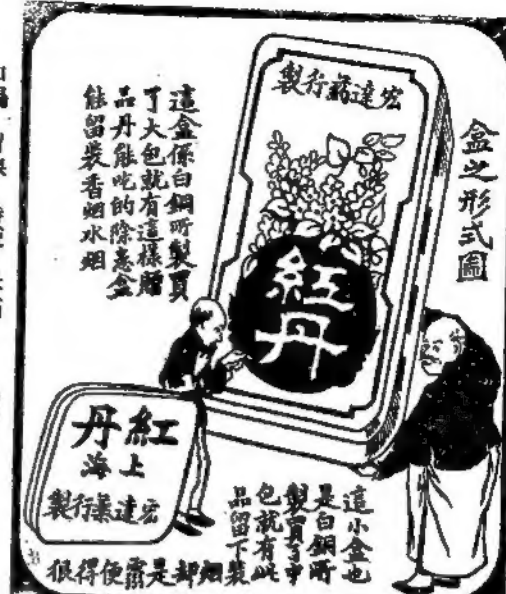 盒之形式圖
宏達葯行製
紅丹
這盒係白銅所製買
了大包就有這樣贈
品丹能吃的除恙盒
能留裝香烟水烟
紅丹
上海
宏達葯行製
這小盒也
是白銅所
製買了中
包就有此
品留下
裝烟却是靈便得狠